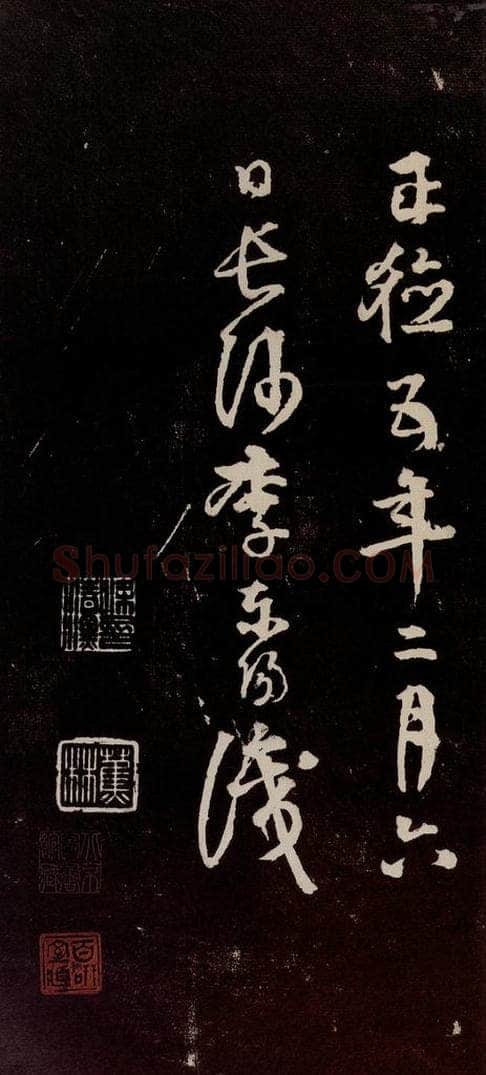 正德五年二月六
日長沙李東陽識
Shufaziliao.COM